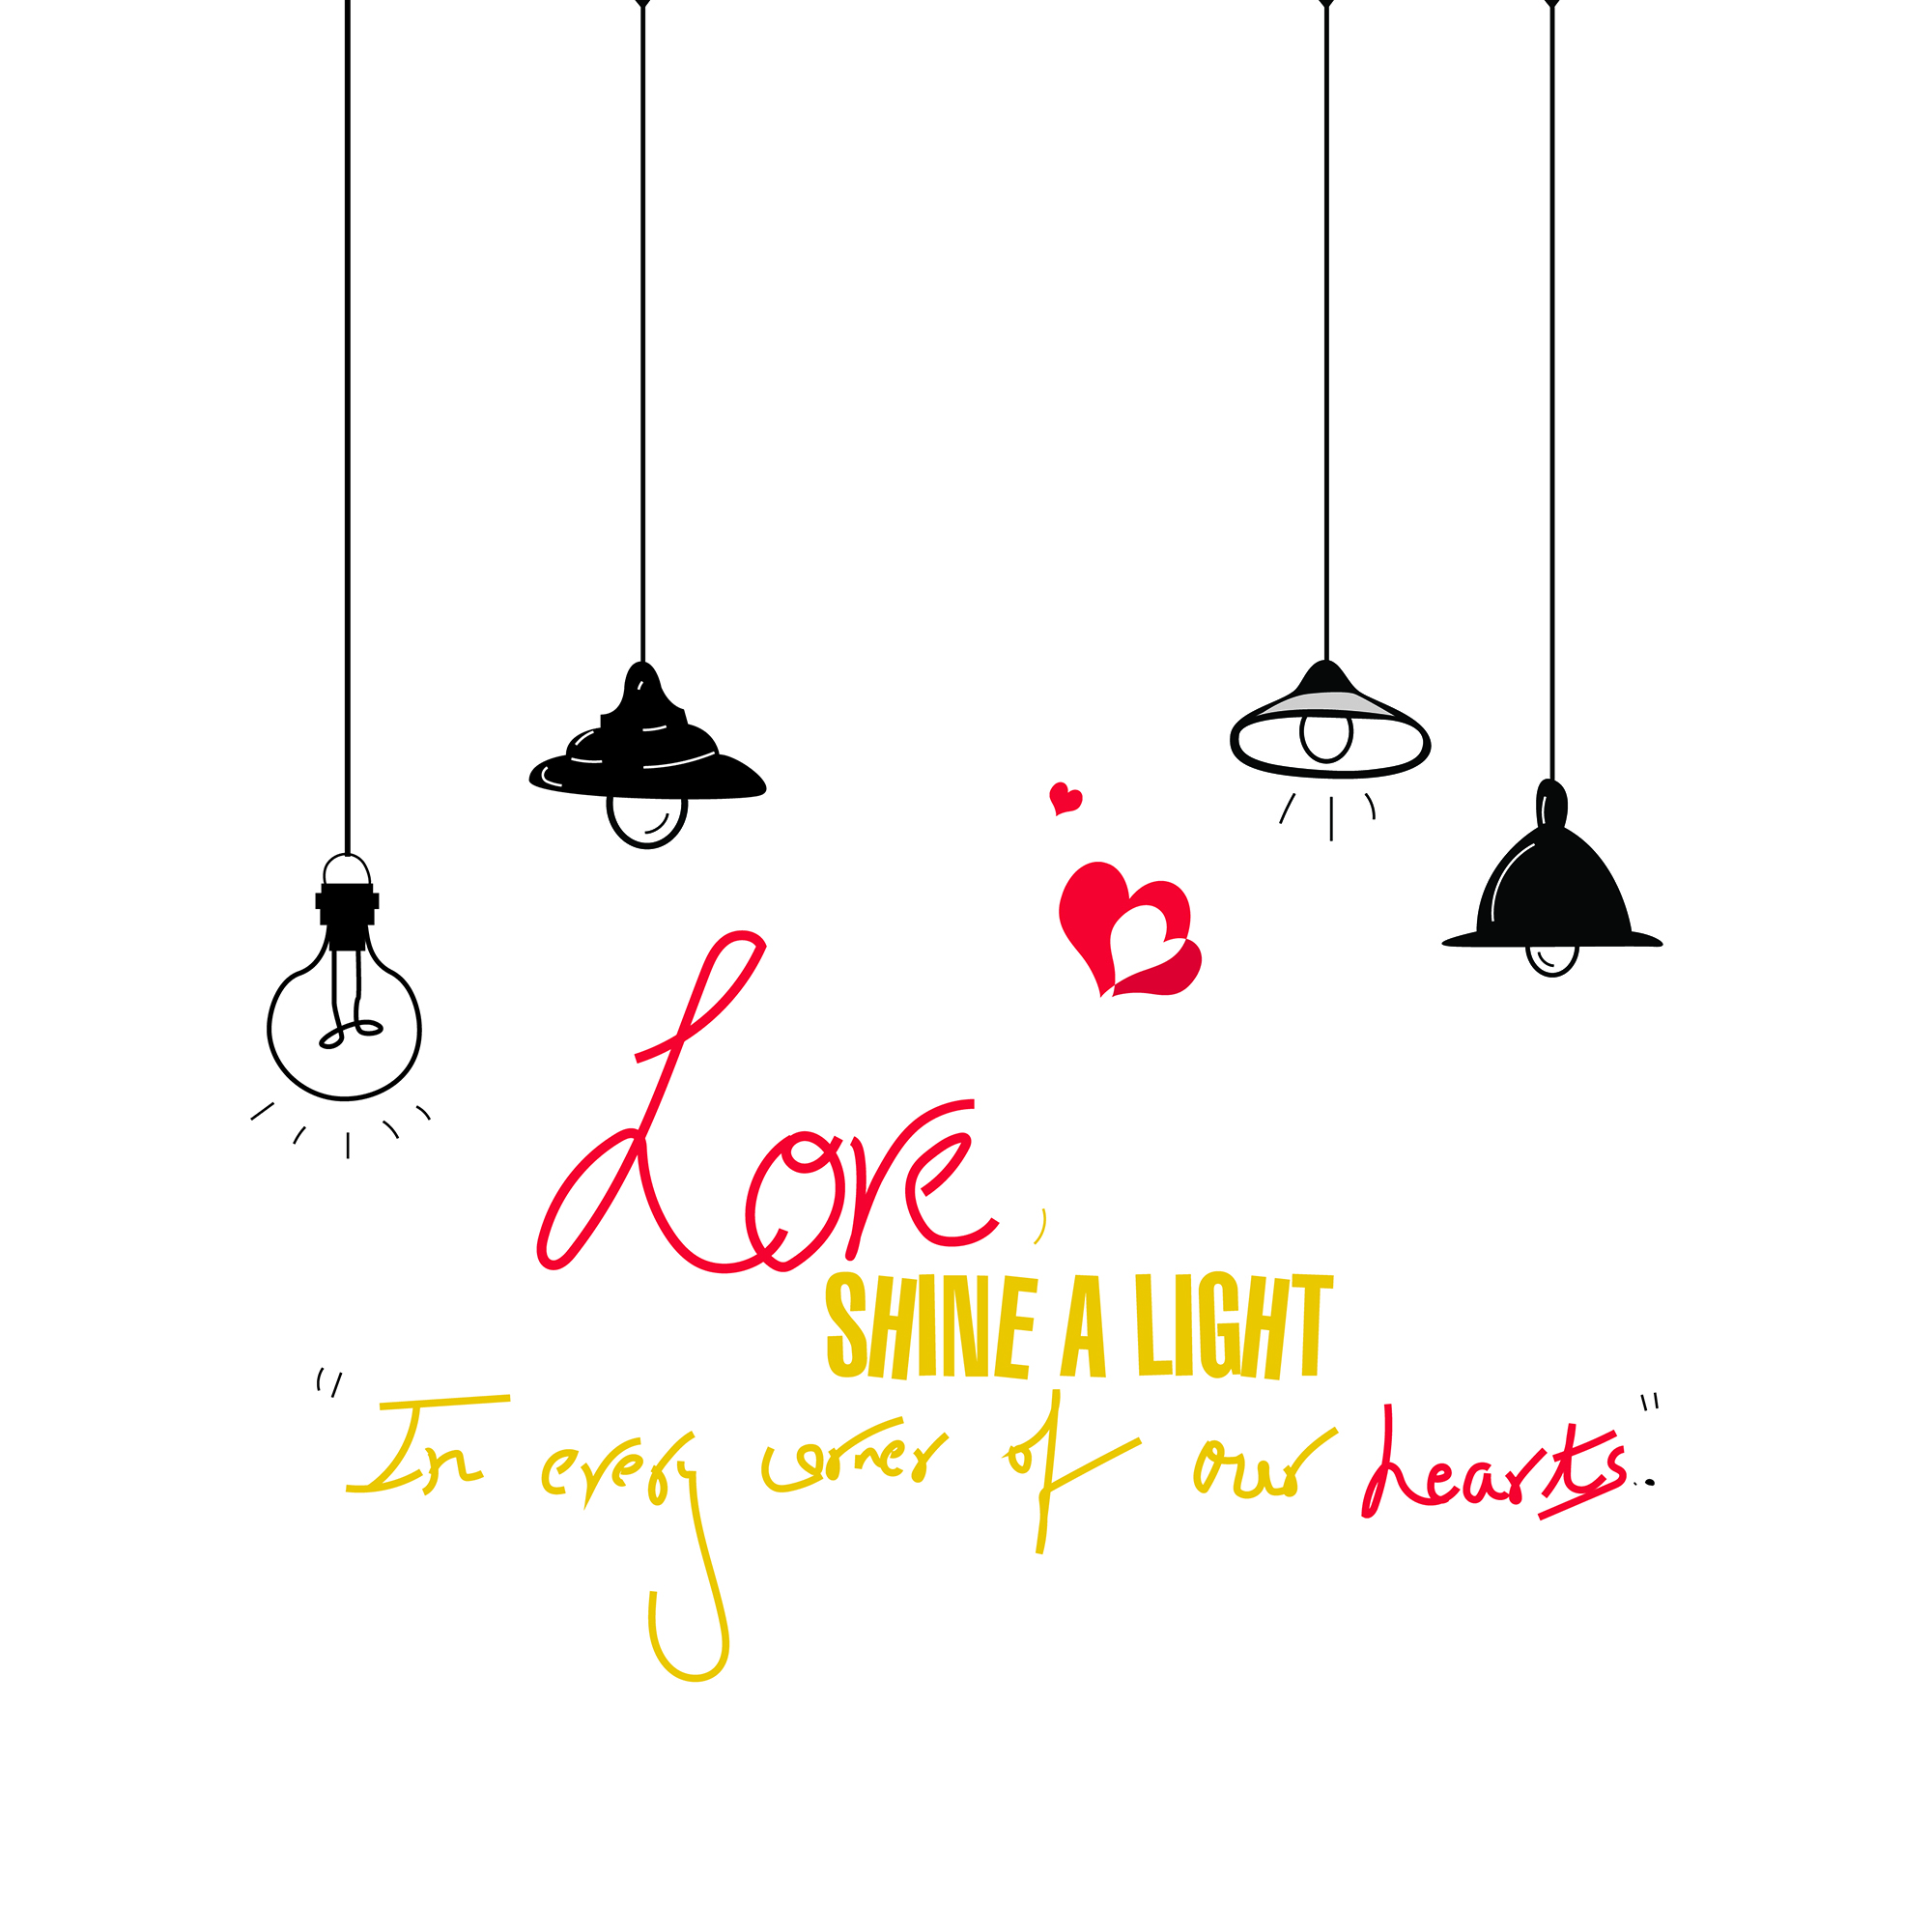 Love,
SHINE A LIGHT
"In every corner of our hearts."